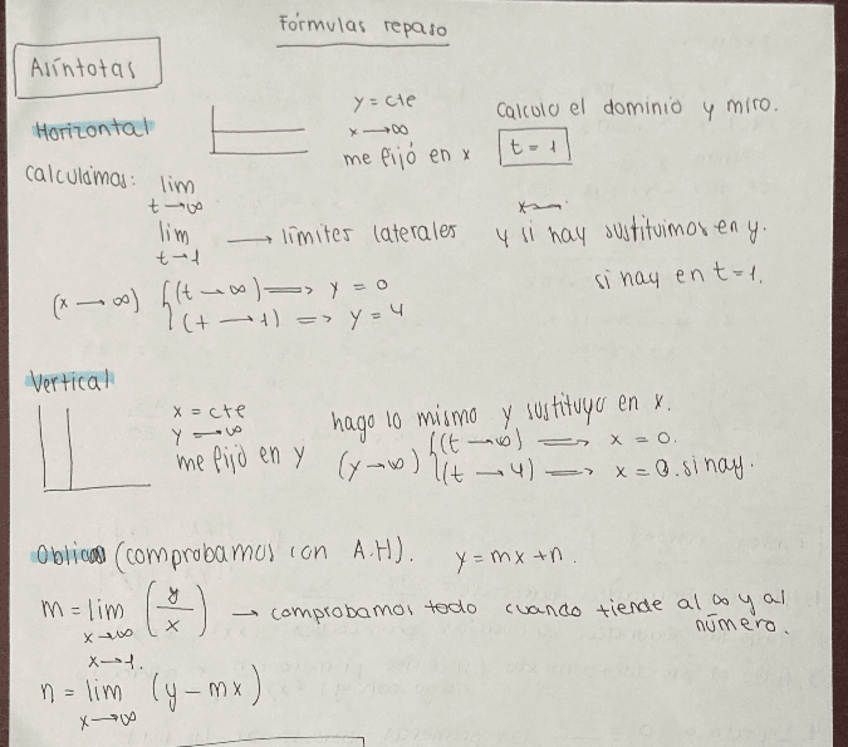 Fórmulas repaso
Asíntotas
Horizontal
y = cte
x → ∞
me fijó en x
Calculo el dominio y miro.
t = 1
Calculamos: lim
t → ∞
lim → límites laterales
t → 1
y si hay sustituimos en y.
si hay en t = 1.
(x → ∞) { (t → ∞) => y = 0
(t → 1) => y = 4
Vertical
x = cte
y → ∞
me fijo en y
hago lo mismo y sustituyo en x.
(y → ∞) { (t → ∞) => x = 0.
(t → 4) => x = 0. si hay.
Oblicua (comprobamos con A.H). y = mx + n.
m = lim (y/x) → comprobamos todo cuando tiende al ∞ y al
número.
x → ∞
x → 1.
n = lim (y - mx)
x → ∞